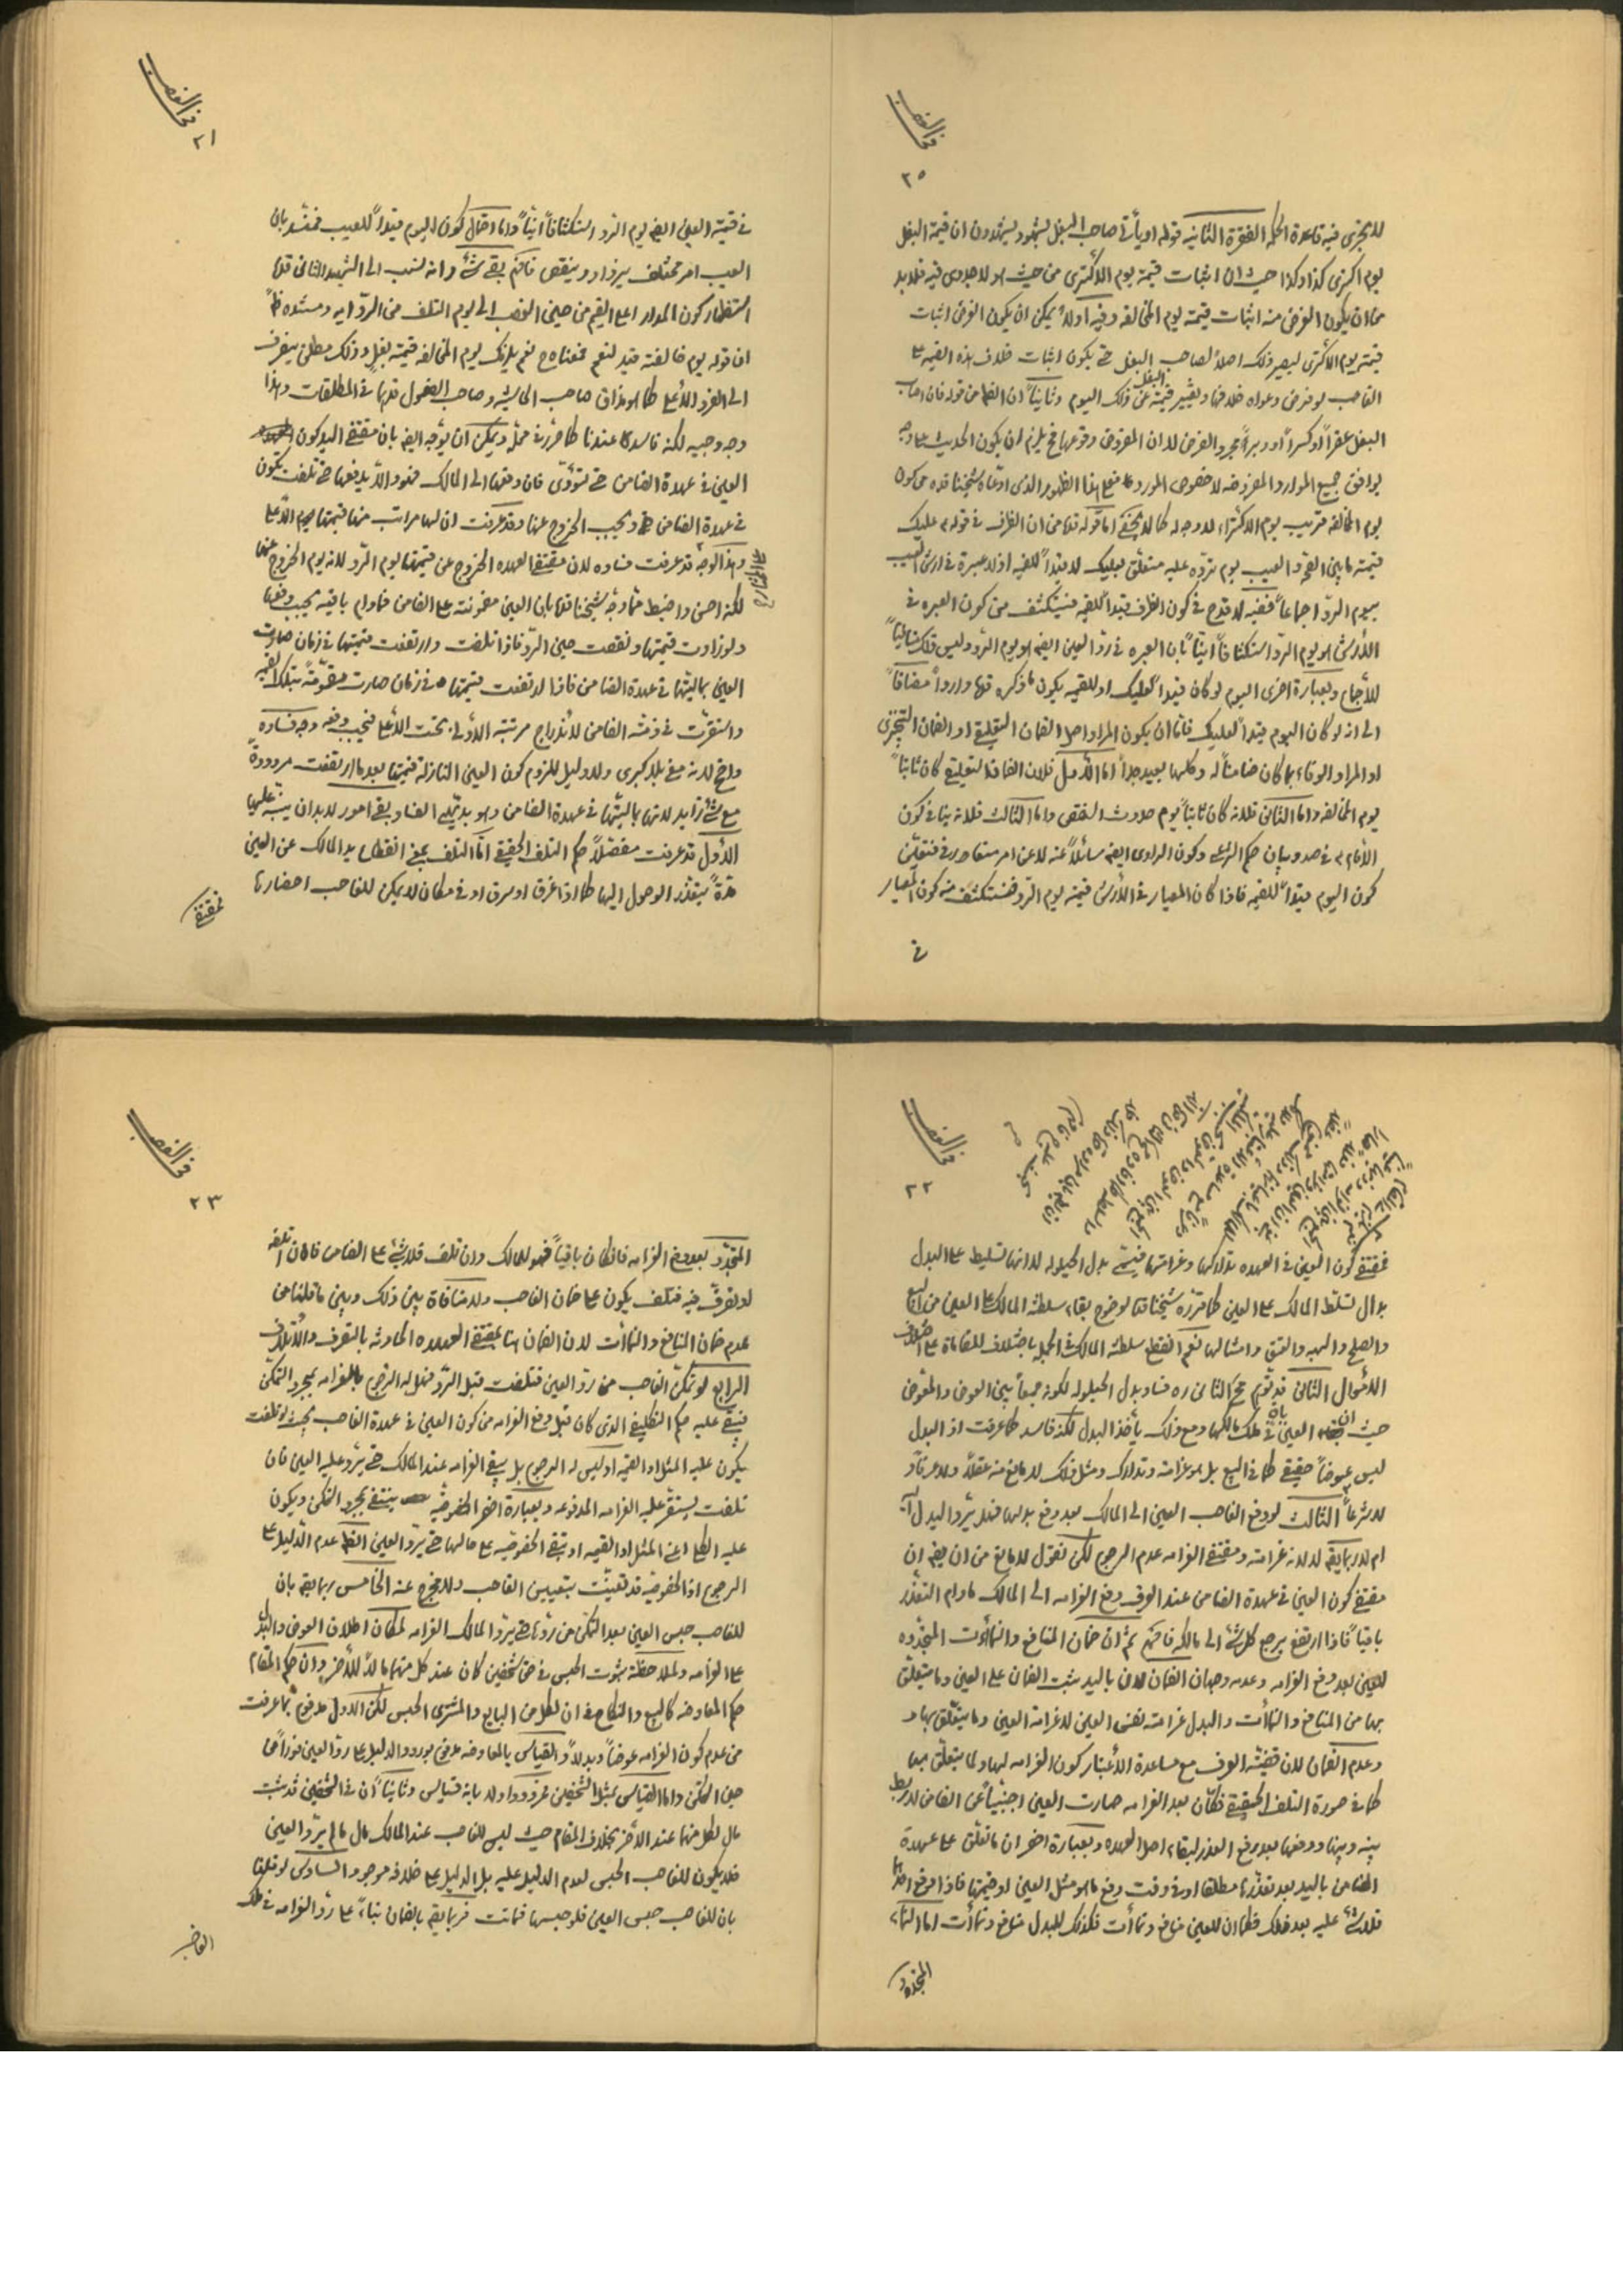 في الغصب
٢٥
للتجزى فيه قاعدة الحكم الفقرة الثانيه قوله او يأتى صاحب البغل بشهود يشهدون ان قيمة البغل
يوم اكترى كذا وكذا حيث ان اثبات قيمة يوم الاكترى من حيث هو لا جدوى فيه فلا بد
من ان يكون الغرض منه اثبات قيمته يوم المخالفه وفيه اولاً يمكن ان يكون الغرض اثبات
قيمته يوم الاكترى ليصير ذلك اصلاً لصاحب البغل حتى يكون اثبات خلاف هذه القيمه على
الغاصب لو فرض دعواه خلافها وتغيير قيمة البغل عن ذلك اليوم وثانياً ان الظ من قوله فان اصاب
البغل عقراً او كسراً او دبراً مجرد الفرض لا ان المفروض وقوعها فح يلزم ان يكون الحديث على وجه
يوافق جميع الموارد المفروضه لا خصوص المورد فما هذا الظهور الذى ادعاه شيخنا قده من كون
يوم المخالفه قريب يوم الاكتراء لا وجه له كما لا يخفى اما قوله قدا من ان الظرف في قوله ع عليك
قيمة ما بين الصحة والعيب يوم ترده عليه متعلق بعليك لا قيداً للقيمه اذ لا عبرة في ارش العيب
بيوم الردّ اجماعاً ففيه لا قدح في كون الظرف قيداً للقيمه فيستكشف من كون العبره في
الأرش هو يوم الردّ استكشافاً انيّاً بان العبره في ردّ العين ايضه هو يوم الردّ وليس ذلك منافياً
للأجماع وبعبارة اخرى اليوم لو كان قيداً لعليك او للقيمه يكون ما ذكره قها وارداً مضافاً
الى انه لو كان اليوم قيداً لعليك فأمّا ان يكون المراد اصل الضمان التعليقى او الضمان التنجيزى
او المراد الوفاء بما كان ضامناً له وكلها بعيد جداً اما الأول فلان الضمان التعليقى كان ثابتاً
يوم المخالفه واما الثانى فلانه كان ثابتاً يوم حدوث النقص واما الثالث فلانه ينافى كون
الأمام ع في صدد بيان حكم الشرعى وكون الراوى ايضه سائلاً عنه لا عن امر متعارف فتعيّن
كون اليوم قيداً للقيمه فاذا كان المعيار في الأرش قيمة يوم الردّ فنستكشف منه كون المعيار
في
في الغصب
٢١
في قيمة العين ايضه يوم الردّ استكشافاً انيّاً واما احتمال كون اليوم قيداً للعيب فمخدش بان
العيب امر مختلف يزداد وينقص فافهم بقى شئ وانه نسب الى الشهيد الثانى قدا
استظهار كون المدار اعلى القيم من حين الغصب الى يوم التلف من الروايه ومستنده ظ
ان قوله يوم خالفته قيد لنعم فمعناه ح نعم يلزمك يوم المخالفه قيمة بغل وذلك مطلق ينصرف
الى الفرد الأعلى كما هو مذاق صاحب الحاشيه وصاحب الفصول قدهما في المطلقات وهذا
وجه وجيه لكنه فاسد عندنا كما حرّر في محلّه ويمكن ان يوجّه ايضه بان مقتضى اليد كون
العين في عهدة الضامن حتى تؤدّى فان دفعها الى المالك فهو والّا يدفعها حتى تلفت تكون
في عهدة الضامن ويجب الخروج عنها وقد عرفت ان لها مراتب منها قيمتها يوم الأعلى
وهذا الوجه قد عرفت فساده لان مقتضى العهده الخروج عن قيمتها يوم الردّ لانه يوم الخروج عنها
على المختار
لكنه احسن واضبط مما وجّه شيخنا قدا بان العين مضمونة على الضامن فما دام باقيه يجب دفعها
ولو زادت قيمتها ونقصت حين الردّ فاذا تلفت وارتفعت قيمتها في زمان صارت
العين بماليتها في عهدة الضامن فاذا ارتفعت قيمتها في زمان صارت متقوّمةً بتلك القيمه
واستقرّت في ذمّة الضامن لاندراج مرتبة الأولى تحت الأعلى فيجب دفعه وجه فساده
واضح لانه مبنى بلا كبرى ولا دليل للزوم كون العين النازله قيمتها بعد ما ارتفعت مردودةً
مع شئ زايد لانها بماليتها في عهدة الضامن وهو بديهى الفساد بقى امور لا بد ان ينبّه عليها
الأول قد عرفت مفصّلاً حكم التلف الحقيقى امّا التلف بمعنى انقطاع يد المالك عن العين
مدّةً يتعذّر الوصول اليها كما اذا غرق او سرق او في مكان لا يمكن للغاصب احضارها
فمقتضى
في الغصب
٢٢
فمقتضى كون العين في العهده تداركها وغرامتها فيسمّى بدل الحيلوله لا انها تسليط على البدل
بدال تسلّط المالك على العين كما قرّره شيخنا قدا لوضوح بقاء سلطنة المالك على العين من البيع
والصلح والهبه والعتق وامثالها نعم انقطع سلطنة المالك في الجمله باختلاف المقامات على اختلاف
الأحوال الثانى قد توهّم المحقق الثانى ره فساد بدل الحيلوله لكونه جمعاً بين العوض والمعوّض
حيث ان العين باق في ملك مالكها ومع ذلك يأخذ البدل لكنه فاسد كما عرفت اذ البدل
ليس عوضاً حقيقى كما في البيع بل هو غرامة وتدارك ومثل ذلك لا مانع منه عقلاً ولا عرفاً و
لا شرعاً الثالث لو دفع الغاصب العين الى المالك بعد دفع بدلها فهل يردّ البدل اليه
ام لا ربما يقه لا لانه غرامة ومقتضى الغرامه عدم الرجوع لكن نقول لا مانع من ان يقه ان
مقتضى كون العين في عهدة الضامن عند العرف دفع الغرامه الى المالك ما دام التعذّر
باقياً فاذا ارتفع يرجع كل شئ الى مالكه فافهم ثم ان ضمان المنافع والنمآءات المتجدّده
للعين بعد دفع الغرامه وعدمه وجهان الضمان لان باليد يثبت الضمان على العين وما يتعلّق
بها من المنافع والنمآءات والبدل غرامة نفس العين لا غرامة العين وما يتعلّق بها و
وعدم الضمان لان قضيّة العرف مع مساعدة الأعتبار كون الغرامه لها ولما يتعلّق بها
كما في صورة التلف الحقيقى فكأنّ بعد الغرامه صارت العين اجنبيّاً عن الضامن لا ربط
بينه وبينها ودفعها بعد رفع العذر لبقاء اصل العهده وبعبارة اخرى ان ما تعلّق على عهدة
الضامن باليد بعد تعذّرها مطلقا او في وقت دفع ما هو مثل العين او قيمتها فاذا دفع احدهما
فلا شئ عليه بعد ذلك فكما ان للعين منافع ونمآءات فكذلك للبدل منافع ونمآءات اما النماء
المتجدّد
في الغصب
٢٣
المتجدّد بعد دفع الغرامه فان كان باقياً فهو للمالك وان تلف فلا شئ على الضامن فان اتلفه
او تصرّف فيه فتلف يكون على ضمان الغاصب ولا منافاة بين ذلك وبين ما قلنا من
عدم ضمان المنافع والنمآءات لان الضمان هنا بمقتضى العهده الحادثه بالتصرف والأتلاف
الرابع لو تمكّن الغاصب من ردّ العين فتلفت قبل الردّ فهل له الرجوع بالغرامه بمجرد التمكّن
فيبقى عليه حكم التكليفى الذى كان قبل دفع الغرامه من كون العين في عهدة الغاصب بحيث لو تلفت
يكون عليه المثل او القيمه او ليس له الرجوع بل يبقى الغرامه عند المالك حتى يردّ عليه العين فان
تلفت يستقرّ عليه الغرامه المدفوعه وبعبارة اخرى الخصوصيّه ينتفى بمجرد التمكّن ويكون
عليه الكلى اعنى المثل او القيمه او تبقى الخصوصيّه على حالها حتى يردّ العين الظ عدم الدليل على
الرجوع اذ الخصوصيّه قد تعيّنت بتعيين الغاصب ولا مخرج عنه الخامس ربما يقه بان
للغاصب حبس العين بعد التمكّن من ردّها حتى يردّ المالك الغرامه لمكان اطلاق العوض والبدل
على الغرامه ولملاحظة ثبوت الحبس في حق شخصين كان عند كل منهما مال للأخر وان حكم المقام
حكم المعاوضه كالبيع والنكاح في ان لكل من البايع والمشترى الحبس لكن الاول مدفوع بما عرفت
من عدم كون الغرامه عوضاً وبدلاً والقياس بالمعاوضه مدفوع بورود الدليل على ردّ العين فوراً من
حين التمكّن واما القياس بمثل الشخصين فمردود اولا بانه قياس وثانياً ان في الشخصين قد ثبت
مال لكل منهما عند الأخر بخلاف المقام حيث ليس للغاصب عند المالك مال ما لم يردّ العين
فلا يكون للغاصب الحبس لعدم الدليل عليه بل الدليل على خلافه موجود السادس لو قلنا
بان للغاصب حبس العين فلو حبسها فماتت فربما يقه بالضمان بناءً على ردّ الغرامه في ملك
الغاصب